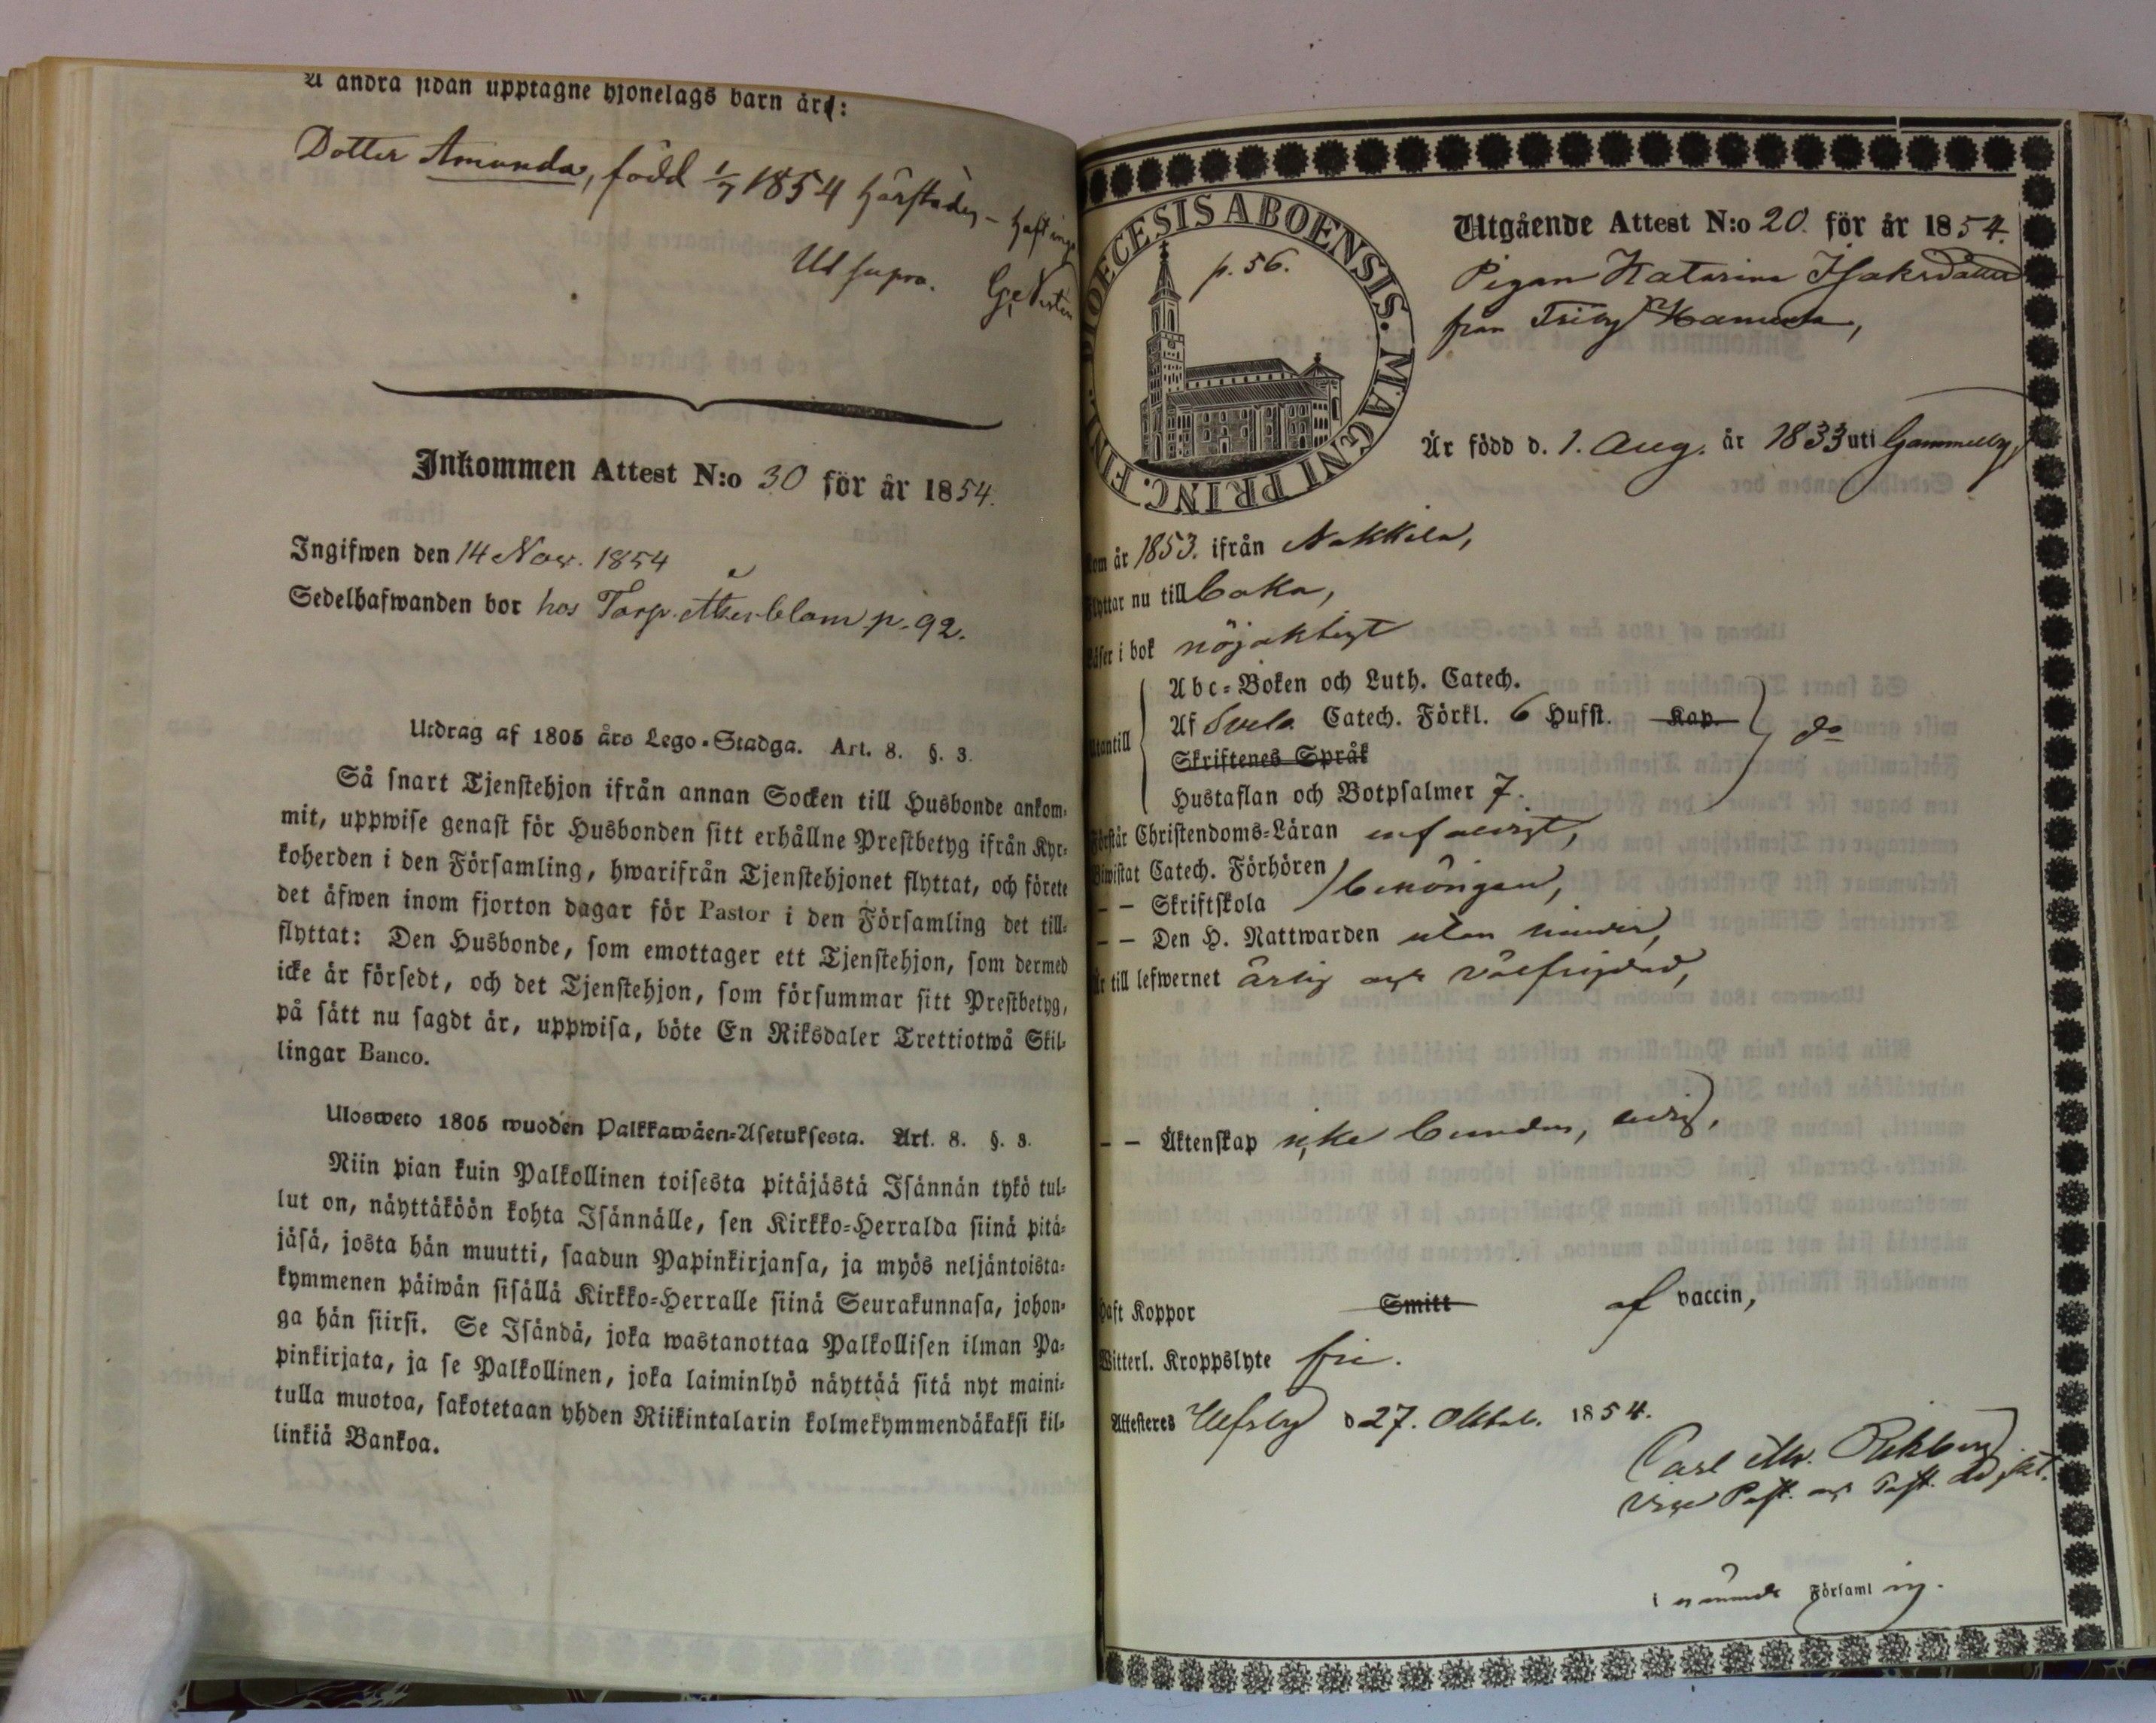 A andra sidan upptagne hjonelags barn äro:
Dotter Amanda, född 1/7 1854 härstädes – haft
Ut supra.
Inkommen Attest N:o 30 för år 1854.
Ingifwen den 14 Nov. 1854
Sedelhafwanden bor hos Torp. Åkerblom p. 92.
Utdrag af 1805 års Lego-Stadga. Art. 8. §. 3.
Så snart Tjenstehjon ifrån annan Socken till Husbonde ankom-
mit, uppwise genast för Husbonden sitt erhållne Prestbetyg ifrån Kyr-
koherden i den Församling, hwarifrån Tjenstehjonet flyttat, och förete
det äfwen inom fjorton dagar för Pastor i den Församling det till-
flyttat: Den Husbonde, som emottager ett Tjenstehjon, som dermed
icke är försedt, och det Tjenstehjon, som försummar sitt Prestbetyg,
på sätt nu sagdt är, uppwisa, böte En Riksdaler Trettiotwå Skil-
lingar Banco.
Ulosweto 1805 wuoden Palkkawäen-Asetuksesta. Art. 8. §. 3.
Niin pian kuin Palkollinen toisesta pitäjästä Isännän tykö tul-
lut on, näyttäköön kohta Isännälle, sen Kirkko-Herralda siinä pitä-
jäsä, josta hän muutti, saadun Papinkirjansa, ja myös neljäntoista-
kymmenen päiwän sisällä Kirkko-Herralle siinä Seurakunnasa, johon-
ga hän siirsi. Se Isändä, joka wastanottaa Palkollisen ilman Pa-
pinkirjata, ja se Palkollinen, joka laiminlyö näyttää sitä nyt maini-
tulla muotoa, sakotetaan yhden Riikintalarin kolmekymmendäkaksi kil-
linkiä Bankoa.
DIOECESIS ABOENSIS. MAGNI PRINC. FINL.
p. 56.
Utgående Attest N:o 20. för år 1854.
Pigan Katarina Isaksdotter
från Friby
Är född d. 1. Aug. år 1833 uti Gammelby,
kom år 1853. ifrån Nakkila,
Flyttar nu tillbaka,
Läser i bok nöjaktigt
Utantill
Abc-Boken och Luth. Catech.
Af Svebe. Catech. Förkl. 6 Hufst. Kap.
Skriftenes Språk
Hustaflan och Botpsalmer 7.
do
Förstår Christendoms-Läran enfaldigt,
Biwistat Catech. Förhören
– – Skriftskola
behörigen,
– – Den H. Nattwarden utan hinder,
Är till lefwernet ärlig och välfrejdad,
– – Äktenskap icke bunden, ledig,
Haft Koppor Smitt af vaccin,
Witterl. Kroppslyte fri.
Attesteras Ulfsby d 27. Oktob. 1854.
Carl
vice Past.
i nämnde Församling.